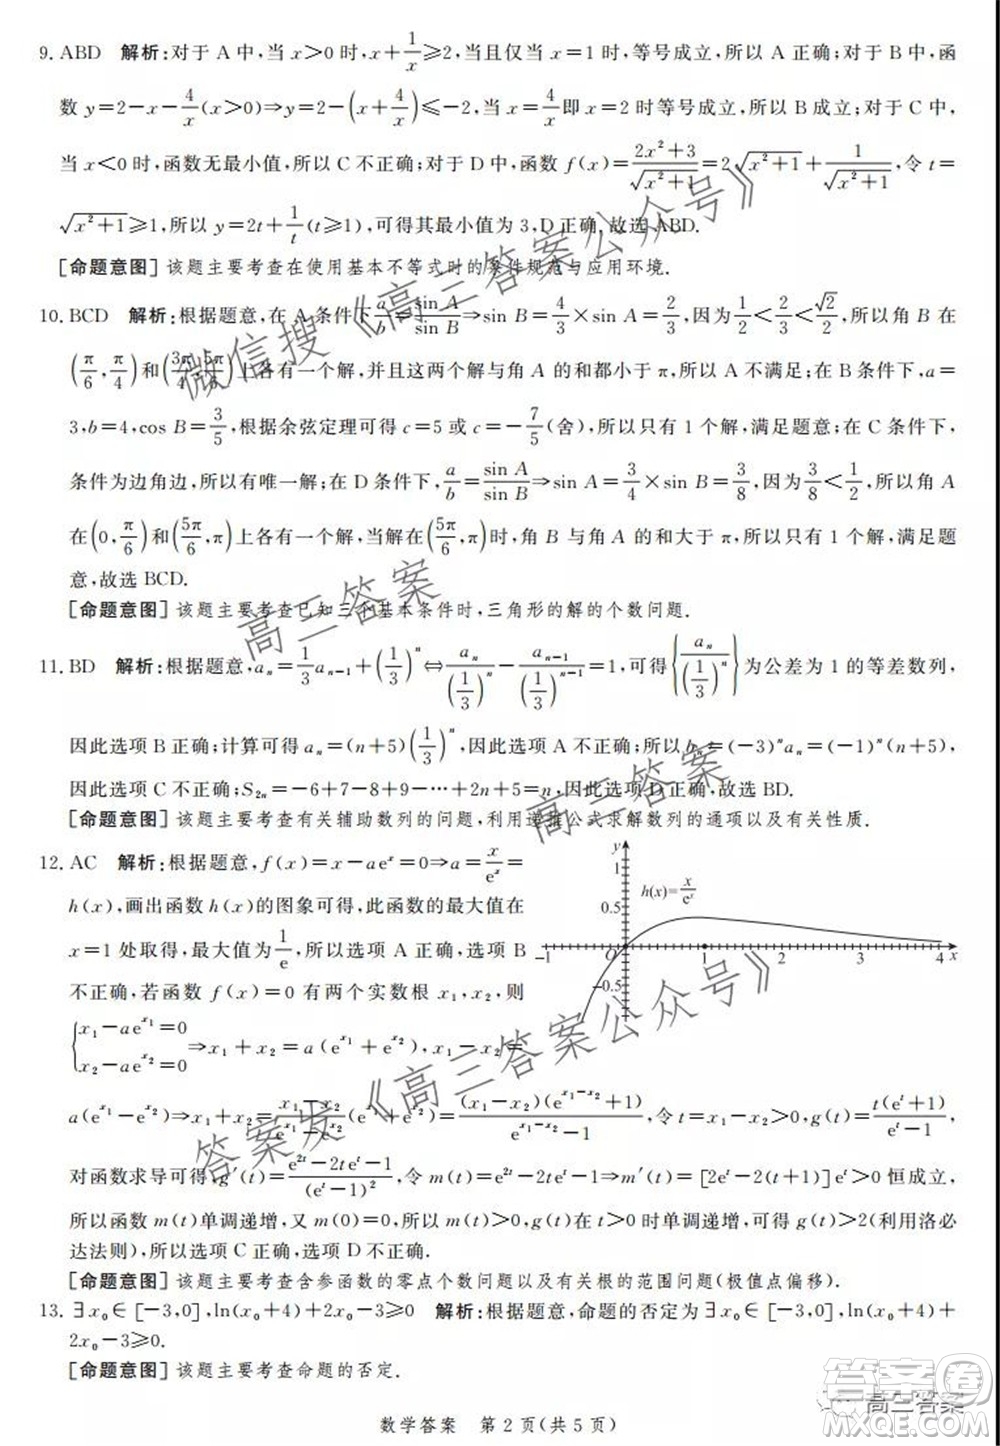 9. ABD 解析:对于 A 中,当 x>0 时,x+1/x≥2,当且仅当 x=1 时,等号成立,所以 A 正确;对于 B 中,函
数 y=2-x-4/x(x>0)⇒y=2-(x+4/x)≤-2,当 x=4/x即 x=2 时等号成立,所以 B 成立;对于 C 中,
当 x<0 时,函数无最小值,所以 C 不正确;对于 D 中,函数 f(x)=(2x²+3)/√(x²+1)=2√(x²+1)+1/√(x²+1),令 t=
√(x²+1)≥1,所以 y=2t+1/t(t≥1),可得其最小值为 3,D 正确,故选 ABD.
[命题意图]该题主要考查在使用基本不等式时的条件规范与应用环境.
10. BCD 解析:根据题意,在 A 条件下a/b=sin A/sin B⇒sin B=4/3×sin A=2/3,因为1/2<2/3<√2/2,所以角 B 在
(π/6,π/4)和(3π/4,5π/6)上各有一个解,并且这两个解与角 A 的和都小于 π,所以 A 不满足;在 B 条件下,a=
3,b=4,cos B=3/5,根据余弦定理可得 c=5 或 c=-7/5(舍),所以只有 1 个解,满足题意;在 C 条件下,
条件为边角边,所以有唯一解;在 D 条件下,a/b=sin A/sin B⇒sin A=3/4×sin B=3/8,因为3/8<1/2,所以角 A
在(0,π/6)和(5π/6,π)上各有一个解,当解在(5π/6,π)时,角 B 与角 A 的和大于 π,所以只有 1 个解,满足题
意,故选 BCD.
[命题意图]该题主要考查已知三个基本条件时,三角形的解的个数问题.
11. BD 解析:根据题意,aₙ=1/3aₙ₋₁+(1/3)ⁿ⇔aₙ/(1/3)ⁿ-aₙ₋₁/(1/3)ⁿ⁻¹=1,可得{aₙ/(1/3)ⁿ}为公差为 1 的等差数列,
因此选项 B 正确;计算可得 aₙ=(n+5)(1/3)ⁿ,因此选项 A 不正确;所以 bₙ=(-3)ⁿaₙ=(-1)ⁿ(n+5),
因此选项 C 不正确;S₂ₙ=-6+7-8+9-…+2n+5=n,因此选项 D 正确,故选 BD.
[命题意图]该题主要考查有关辅助数列的问题,利用递推公式求解数列的通项以及有关性质.
12. AC 解析:根据题意,f(x)=x-aeˣ=0⇒a=x/eˣ=
h(x),画出函数 h(x)的图象可得,此函数的最大值在
x=1 处取得,最大值为1/e,所以选项 A 正确,选项 B
不正确,若函数 f(x)=0 有两个实数根 x₁,x₂,则
{x₁-ae^(x₁)=0
x₂-ae^(x₂)=0⇒x₁+x₂=a(e^(x₁)+e^(x₂)),x₁-x₂=
y
1
0.5
h(x)=x/eˣ
-1 O 1 2 3 4 x
-0.5
-1
a(e^(x₁)-e^(x₂))⇒x₁+x₂=(x₁-x₂)/(e^(x₁)-e^(x₂))(e^(x₁)+e^(x₂))=(x₁-x₂)(e^(x₁-x₂)+1)/(e^(x₁-x₂)-1),令 t=x₁-x₂>0,g(t)=t(eᵗ+1)/(eᵗ-1),
对函数求导可得,g′(t)=(e²ᵗ-2teᵗ-1)/(eᵗ-1)²,令 m(t)=e²ᵗ-2teᵗ-1⇒m′(t)=[2eᵗ-2t-2]eᵗ>0 恒成立,
所以函数 m(t)单调递增,又 m(0)=0,所以 m(t)>0,g(t)在 t>0 时单调递增,可得 g(t)>2(利用洛必
达法则),所以选项 C 正确,选项 D 不正确.
[命题意图]该题主要考查含参函数的零点个数问题以及有关根的范围问题(极值点偏移).
13. ∃x₀∈[-3,0],ln(x₀+4)+2x₀-3≥0 解析:根据题意,命题的否定为∃x₀∈[-3,0],ln(x₀+4)+
2x₀-3≥0.
[命题意图]该题主要考查命题的否定.
数学答案 第 2 页(共 5 页)
微信搜《高三答案公众号》
高三答案
高三答案
答案发《高三答案公众号》
高三答案
答案圈
MXQE.COM